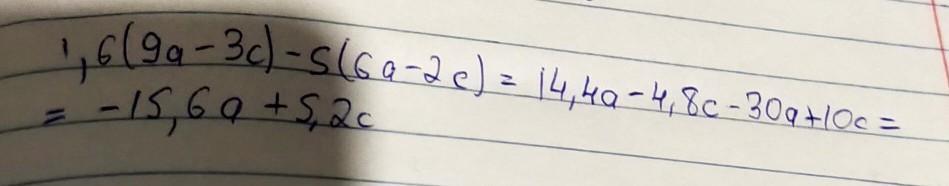 1,6(9a-3c)-5(6a-2c)=14,4a-4,8c-30a+10c=
=-15,6a+5,2c